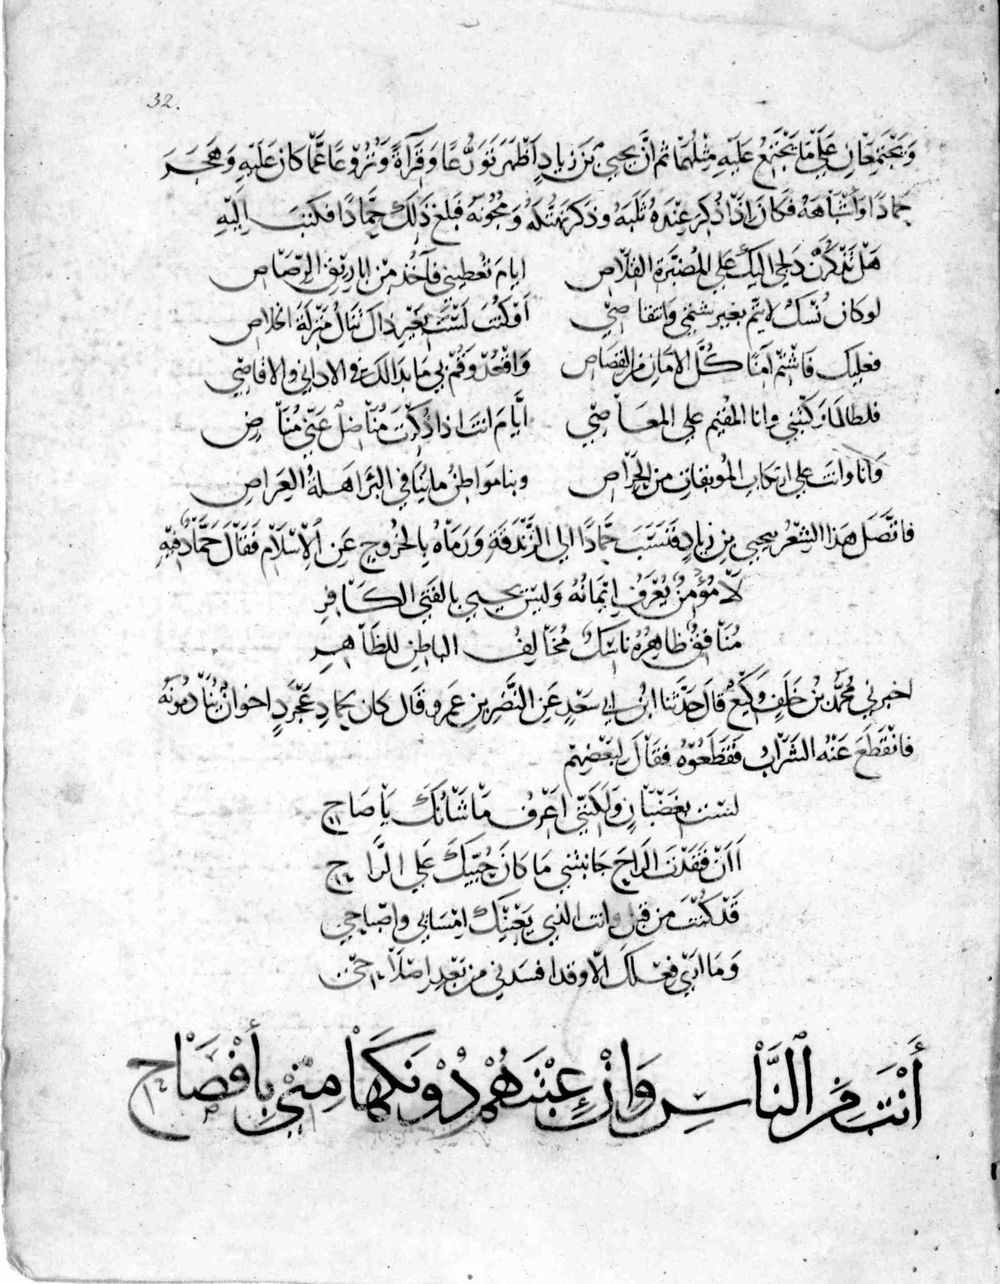 32.
وَيَجْتَمِعَانِ عَلَى مَا يَجْتَمِعُ عَلَيْهِ مِثْلُهُمَا ثم أنَّ يحيى بْنَ زِيادٍ اَظْهَرَ تَوَرُّعًا وَقِرَآةً وَنُزُوعًا عَمَّا كانَ عَلَيْهِ وَهَجَرَ
حمادًا وَاَشْبَاهَهُ فَكَانَ اِذَا ذُكِرَ عِنْدَهُ ثَلَبَهُ وذكَرَ تَهَتُّكَهُ وَمُجُونَهُ فَبلغَ ذَلِكَ حَمَّادًا فكتبَ اِلَيْهِ
هَلْ تَذْكُرَنْ دَلَجِى اليكَ على المُضَبَّرَةِ القلَاصِ ايامَ تُعْطِينى فآخذُ مِنْ اباريقِ الرَّصَاصِ
لو كانَ نُسْكُ لا يَتِمُّ بغيرِ شتمى وَانتقاصِى اَوْ كُنْتَ لَسْتَ بِغَيْرِ ذاكَ تنالُ مَنْزِلَةَ الخَلاصِ
فعليكَ فَاشْتِمْ آمنًا كُلَّ الامَانِ من القصَاصِ وَاقْعُدْ وَقُمْ بى مَا بدا لك فى الادانى والاقاصِى
فلطالما زَكَّيْتَنِى وانا المُقيم على المعَاصِى ايَّامَ انتَ اذا ذُكِرْتَ مُنَاضِلُ عَنِّى مُنَاصِ
وَانا وانتَ على ارتكابِ المُوبقاتِ من الحِرَاصِ وبنا مَواطنُ ما بنا فى البِرِّ اَهِلَةُ العِرَاصِ
فاتَّصَلَ هَذَا الشِّعْرُ بيحيى بنِ زيادٍ فنَسَبَ حَمَّادًا الى الزَّنْدَقَةِ وَرَمَاهُ بِالخُرُوجِ عَنِ الْاِسْلَامِ فَقَالَ حَمَّادٌ فيهِ
لَا مُؤْمِنٌ يُعْرَفُ اِيمَانُهُ وَليسَ يحيى بالفَتَى الكَافِرِ
مُنَافِقٌ ظاهِرُهُ نَاسِكٌ مُخَالِفُ البَاطِنِ للظَّاهِرِ
اخبرنى مُحَمَّدُ بْنُ خَلَفِ وَكِيعٌ قالَ حَدَّثَنَا ابْنُ ابى سَعْدٍ عَنِ النَّضْرِ بنِ عَمرٍو قال كان لحمادِ عَجْرَدٍ اخوانٌ يُنَادِمُونَهُ
فانْقَطَعَ عَنْهُ الشَّرَابُ فَقَطَعُوهُ فَقَالَ لِبَعْضِهِمْ
لَسْتَ بغَضْبَانٍ وَلكِنَّنِى اَعْرِفُ مَا شَانُكَ يَا صَاحِ
اَاَنْ فَقَدْتَ الراحَ جَانَبْتَنِى مَا كانَ حُبِّيكَ عَلَى الرَّاحِ
قَدْ كُنْتَ من قبل وانت الذى يَعْنِيكَ اِمْسَائى وَاِصْبَاحِى
وَمَا ارى فعْلَكَ الَّا وقد افسَدَنى من بَعْدِ اِصْلَاحِى
أَنْتَ مِنَ النَّاسِ وَاِنْ عِبْتَهُمْ دُونَكَهَا مِنِّى بِأِفْصَاحِ